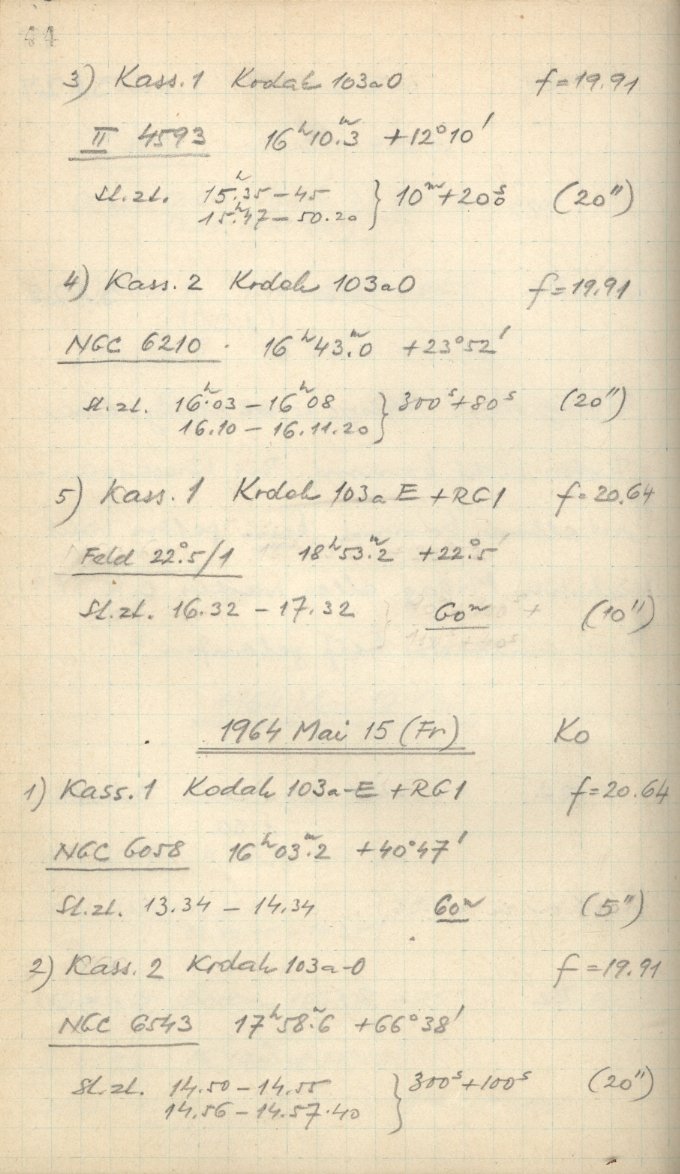 44
3) Kass. 1 Kodak 103aO f = 19.91
II 4593 16ʰ10ᵐ.3 +12°10'
St.zt. 15ʰ.35 – 45 } 10ᵐ + 20ˢ (20")
15ʰ.47 – 50.20
4) Kass. 2 Kodak 103aO f = 19.91
NGC 6210 . 16ʰ43ᵐ.0 +23°52'
St.zt. 16ʰ.03 – 16ʰ08 } 300ˢ+80ˢ (20")
16.10 – 16.11.20
5) Kass. 1 Kodak 103a E + RG1 f = 20.64
Feld 22°.5/1 18ʰ53ᵐ.2 +22°.5
St.zt. 16.32 – 17.32 60ᵐ (10")
1964 Mai 15 (Fr) Ko
1) Kass. 1 Kodak 103a-E + RG1 f = 20.64
NGC 6058 16ʰ03ᵐ.2 +40°47'
St.zt. 13.34 – 14.34 60ᵐ (5")
2) Kass. 2 Kodak 103a-O f = 19.91
NGC 6543 17ʰ58ᵐ.6 +66°38'
St.zt. 14.50 – 14.55 } 300ˢ+100ˢ (20")
14.56 – 14.57.40